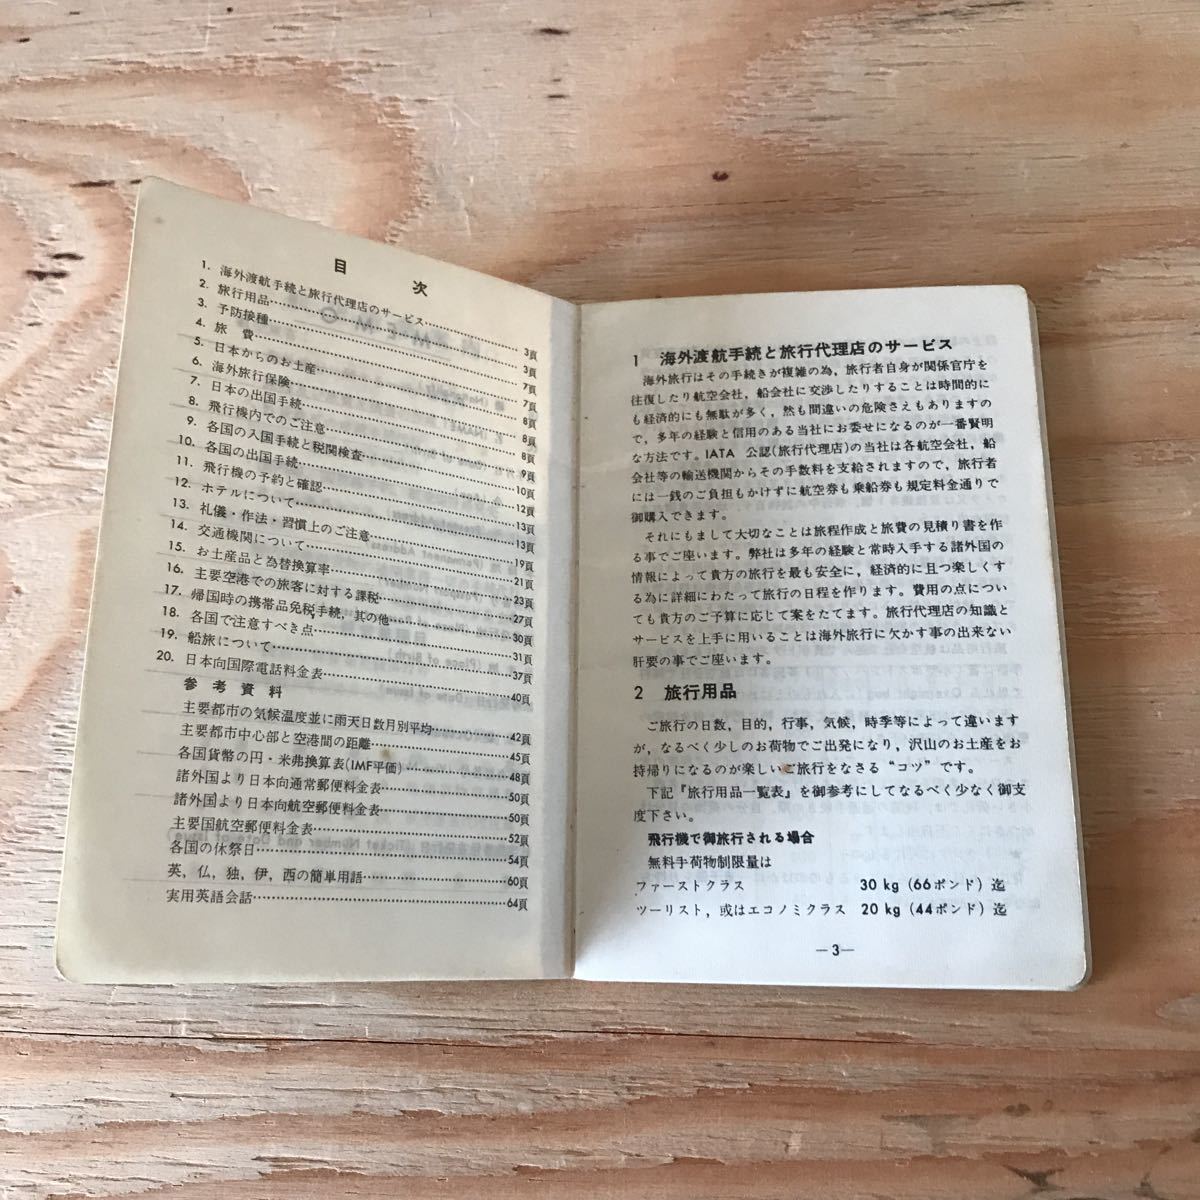 目次
1. 海外渡航手続と旅行代理店のサービス……3頁
2. 旅行用品……3頁
3. 予防接種……7頁
4. 旅　費……7頁
5. 日本からのお土産……7頁
6. 海外旅行保険……8頁
7. 日本の出国手続……8頁
8. 飛行機内でのご注意……8頁
9. 各国の入国手続と税関検査……9頁
10. 各国の出国手続……10頁
11. 飛行機の予約と確認……12頁
12. ホテルについて……13頁
13. 礼儀・作法・習慣上のご注意……13頁
14. 交通機関について……19頁
15. お土産品と為替換算率……21頁
16. 主要空港での旅客に対する課税……23頁
17. 帰国時の携帯品免税手続，其の他……27頁
18. 各国で注意すべき点……30頁
19. 船旅について……31頁
20. 日本向国際電話料金表……37頁
参考資料……40頁
主要都市の気候温度並に雨天日数月別平均……42頁
主要都市中心部と空港間の距離……45頁
各国貨幣の円・米弗換算表(IMF平価)……48頁
諸外国より日本向通常郵便料金表……50頁
諸外国より日本向航空郵便料金表……50頁
主要国航空郵便料金表……52頁
各国の休祭日……54頁
英，仏，独，伊，西の簡単用語……60頁
実用英語会話……64頁
1　海外渡航手続と旅行代理店のサービス
海外旅行はその手続きが複雑の為，旅行者自身が関係官庁を
往復したり航空会社，船会社に交渉したりすることは時間的に
も経済的にも無駄が多く，然も間違いの危険さえもありますの
で，多年の経験と信用のある当社にお委せになるのが一番賢明
な方法です。IATA 公認(旅行代理店)の当社は各航空会社，船
会社等の輸送機関からその手数料を支給されますので，旅行者
には一銭のご負担もかけずに航空券も乗船券も規定料金通りで
御購入できます。
それにもまして大切なことは旅程作成と旅費の見積り書を作
る事でご座います。弊社は多年の経験と常時入手する諸外国の
情報によって貴方の旅行を最も安全に，経済的に且つ楽しくす
る為に詳細にわたって旅行の日程を作ります。費用の点につい
ても貴方のご予算に応じて案をたてます。旅行代理店の知識と
サービスを上手に用いることは海外旅行に欠かす事の出来ない
肝要の事でご座います。
2　旅行用品
ご旅行の日数，目的，行事，気候，時季等によって違います
が，なるべく少しのお荷物でご出発になり，沢山のお土産をお
持帰りになるのが楽しいご旅行をなさる“コツ”です。
下記『旅行用品一覧表』を御参考にしてなるべく少なく御支
度下さい。
飛行機で御旅行される場合
無料手荷物制限量は
ファーストクラス　30 kg (66ポンド) 迄
ツーリスト，或はエコノミクラス　20 kg (44ポンド) 迄
—3—